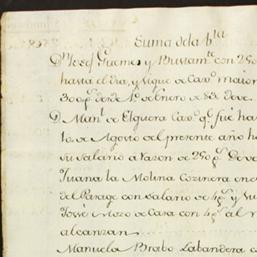 Suma de la b.ta
D.n Josef Guemes y Bustam.te con 250
hasta el dia, y sigue de Cav.o maior
300 p.s desde 1.o de Enero de 83 deve
D. Man.l de Elguera Cav.o q.e fué has
to de Agosto del presente año h
su salario a razon de 250 p.s Deve
Juana la Molina Cozinera en
del Parage con salario de 4 p.s y
Josè Mozo de Casa con 4 p.s al
alcanzan
Manuela Brabo Labandera c